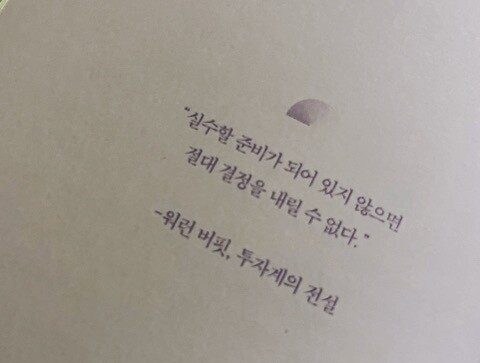 “실수할 준비가 되어 있지 않으면
절대 결정을 내릴 수 없다.”
-워런 버핏, 투자계의 전설